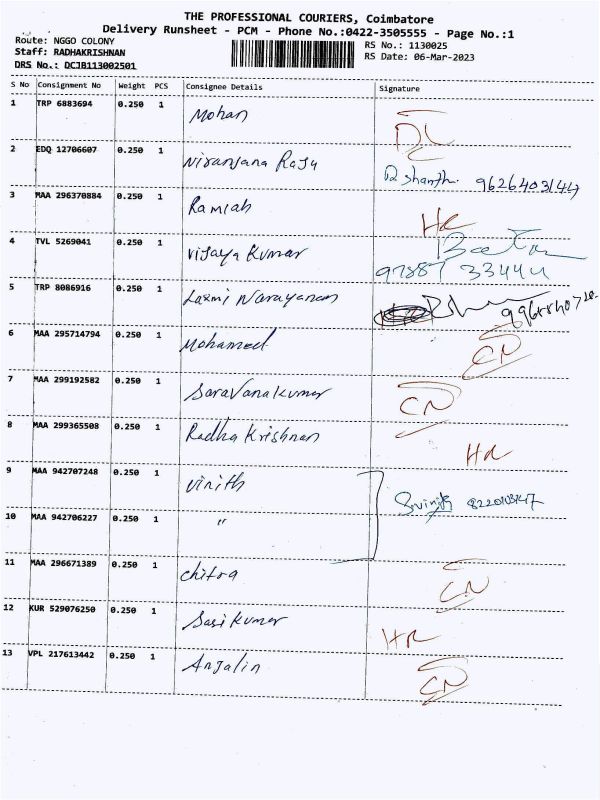 THE PROFESSIONAL COURIERS, Coimbatore
Delivery Runsheet - PCM - Phone No.:0422-3505555 - Page No.:1
Route: NGGO COLONY
RS No.: 1130025
Staff: RADHAKRISHNAN
RS Date: 06-Mar-2023
DRS No.: DCJB113002501
S No Consignment No Weight PCS Consignee Details Signature
1 TRP 6883694 0.250 1 Mohan DL
2 EDQ 12706607 0.250 1 Niranjana Raju
3 MAA 296370884 0.250 1 Ramiah HR
4 TVL 5269041 0.250 1 Vijaya Kumar
5 TRP 8086916 0.250 1 Laxmi Narayanan
6 MAA 295714794 0.250 1 Mohamed CN
7 MAA 299192582 0.250 1 Saravanakumar CN
8 MAA 299365508 0.250 1 Radha Krishnan HR
9 MAA 942707248 0.250 1 Vinith
10 MAA 942706227 0.250 1 "
11 MAA 296671389 0.250 1 Chitra CN
12 KUR 529076250 0.250 1 Sasi Kumar HR
13 VPL 217613442 0.250 1 Anjalin CN